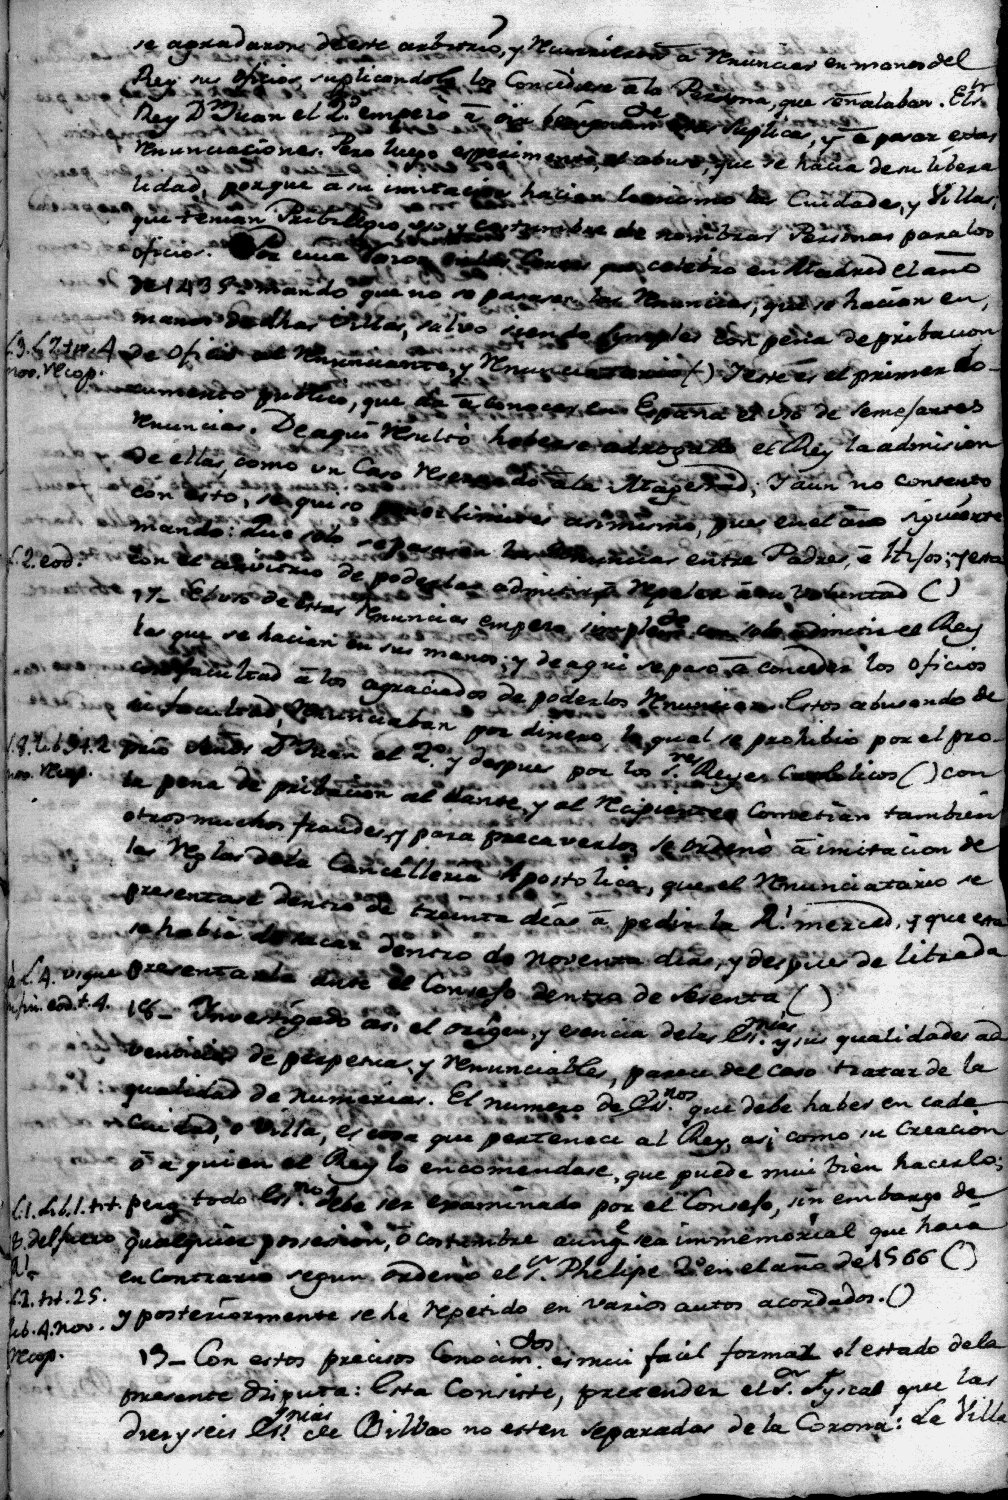 7
se agradaron de este arbitrio, y Vinieron à Renunciar en manos del
Rey sus oficios suplicandole los Concediese à la Persona, que señalaban. El Sr.
Rey Dn. Juan el 2º. empero à oir las Suplicas, y à pasar estas
Renunciaciones. Pero luego esperimentò, el abuso, que se hacia de su libera
lidad, porque à su imitacion hacian lo mismo las Ciudades, y Villas,
que tenian Pribilegio, uso, y costumbre de nombrar Personas para los
oficios. Por una de las Cortes que celebrò en Madrid el año
de 1435 mandò que no se pasasen las Renuncias, que se hacian en,
manos de dhas Villas, salvo siendo simples con pena de pribacion
L.3. y 2. tit. 4. de Oficio al Renunciante, y Renunciatario () Y este es el primer do-
nov. recop.
cumento publico, que dà à conocer en España el uso de semejantes
Renuncias. De aqui Resultò haberse adrogado el Rey la admision
de ellas, como un Caso reservado à la Magestad; Y aun no contento
con esto, se quiso poner limites asimismo, pues en el año siguiente
mandò: Que solo se pasasen las Renuncias entre Padres, è Hijos; y esta
L.2. eod. con el arbitrio de poderlas admitir, ò Repeler à su voluntad ()
17– El uso de estas Renuncias empero simplemte. con solo admitir el Rey
las que se hacian en sus manos; y de aqui se pasò à conceder los oficios
con facultad à los agraciados de poderlos Renunciar. Estos abusando de
su facultad, renunciaban por dinero, lo qual se prohibiò por el pro-
L.8. lib. 7. t. 2 pio Señor Dn. Juan el 2º. y despues por los Sres. Reyes Catholicos () con
nov. recop.
la pena de pribacion al dante, y al Recipiente. Cometian tambien
otros muchos fraudes, y para precaverlos se ordenò à imitacion de
las Reglas de la Cancelleria Apostolica, que el Renunciatario se
presentase dentro de treinta dias à pedir la Rl. merced, y que esta
se habia de sacar dentro de noventa dias, y despues de librada
à L.4. vique presentarla ante el Consejo dentro de sesenta ()
in fin. eod. t. 4.
18– Investigado asi el origen, y esencia de las Essnias. y sus qualidades ad
venticias de perpetuas, y renunciables, parece del caso tratar de la
qualidad de numerias. El numero de Essnos. que debe haber en cada
Ciudad, o Villa, es cosa que pertenece al Rey, asi como su Creacion
ò a quien el Rey lo encomendase, que puede mui bien hacerlo:
L.1. lib. 1. tit. pero todo Essno. debe ser examinado por el Consejo, sin embargo de
8. del fuero qualquier possesion, ò costumbre aunqe. sea inmemorial que haia
Rl.
en contrario segun ordenò el Sr. Phelipe 2º en el año de 1566 ()
L.2. tit. 25.
lib. 4. nov. y posteriormente se ha repetido en varios autos acordados. ()
recop.
19– Con estos precisos Conocimtos. es mui facil formar el estado de la
presente disputa: Esta Consiste, pretender el Sr. Fyscal que las
diez y seis Essnias. de Bilbao no esten separadas de la Corona: La Villa